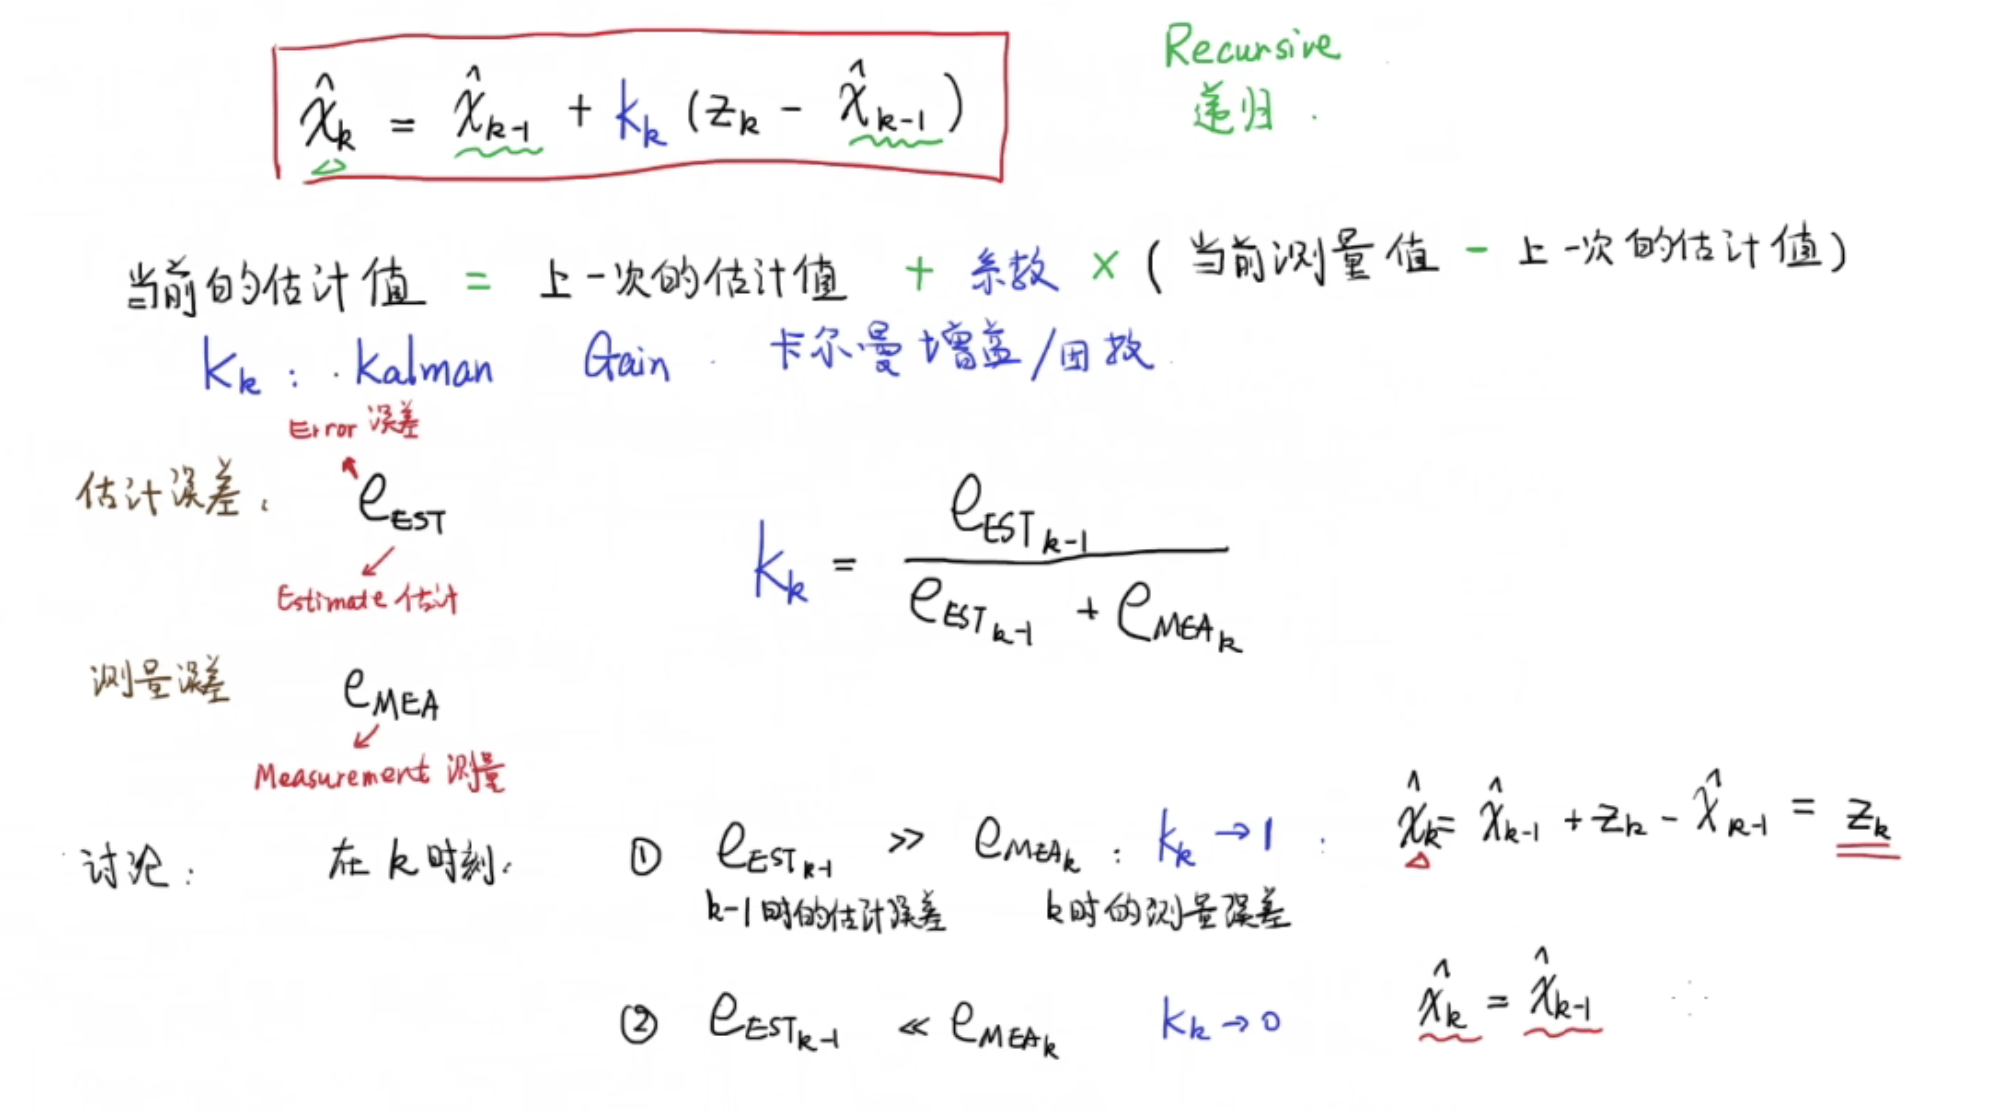 x̂_k = x̂_{k-1} + K_k (z_k - x̂_{k-1})
Recursive
递归.
当前的估计值 = 上一次的估计值 + 系数 × (当前测量值 - 上一次的估计值)
K_k : Kalman Gain 卡尔曼增益/因数
Error 误差
估计误差: e_EST
Estimate 估计
K_k = e_{EST_{k-1}} / (e_{EST_{k-1}} + e_{MEA_k})
测量误差 e_MEA
Measurement 测量
讨论: 在k时刻. ① e_{EST_{k-1}} >> e_{MEA_k} : K_k → 1 : x̂_k = x̂_{k-1} + z_k - x̂_{k-1} = z_k
k-1时的估计误差 k时的测量误差
② e_{EST_{k-1}} << e_{MEA_k} K_k → 0 x̂_k = x̂_{k-1}